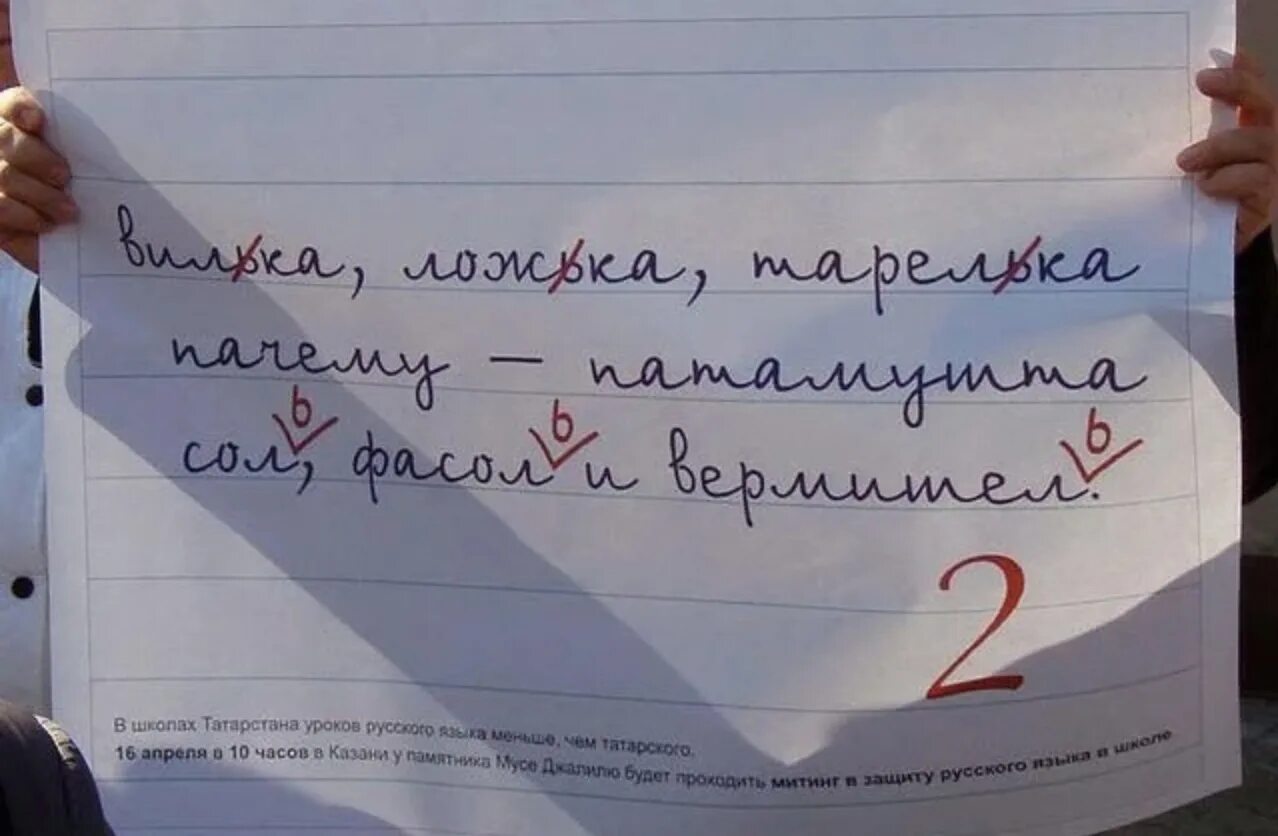 вилька, ложька, тарелька
пачему – патамушта
ь ь ь
сол, фасол и вермишел.
2
В школах Татарстана уроков русского языка меньше, чем татарского.
16 апреля в 10 часов в Казани у памятника Мусе Джалилю будет проходить митинг в защиту русского языка в школе